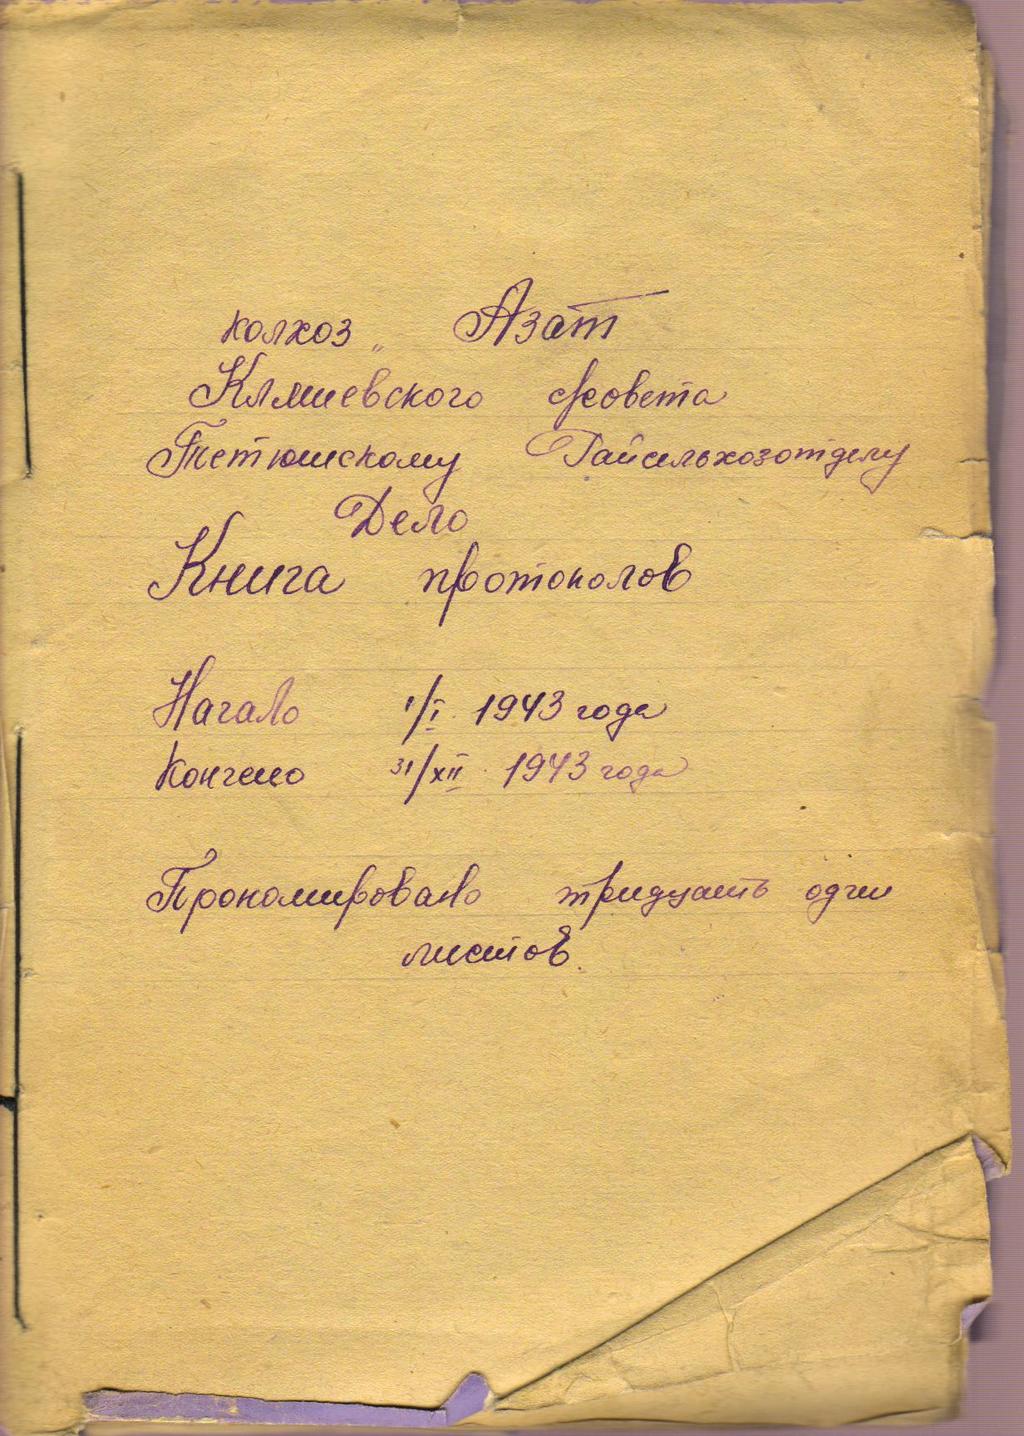 колхоз „ Азат
Кляшевского с/совета
Тетюшскому Райсельхозотделу
Дело
Книга протоколов
Начало 1/I 1943 года
Кончено 31/XII 1943 года
Прономировано тридцать один
листов.